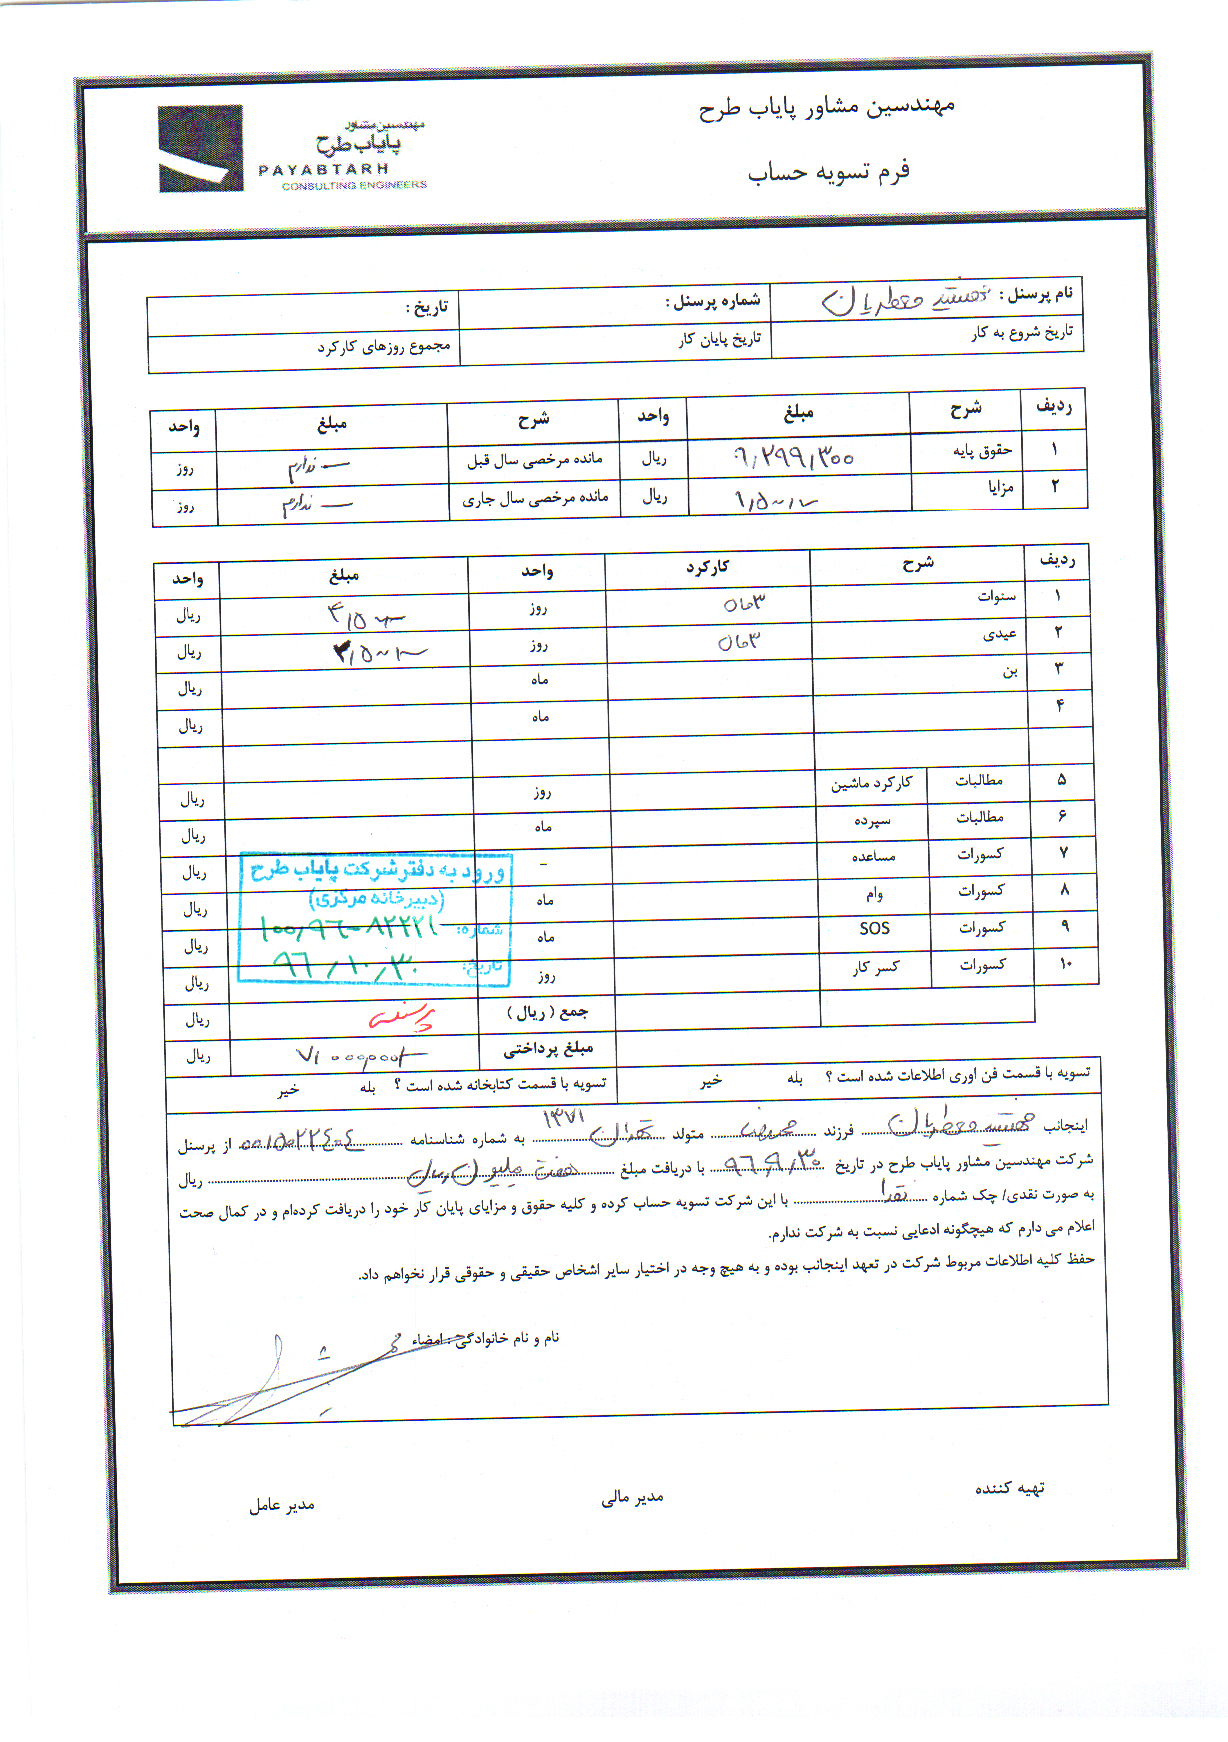 مهندسین مشاور پایاب طرح
فرم تسویه حساب
مهندسین مشاور
پایاب طرح
PAYABTARH
CONSULTING ENGINEERS
نام پرسنل : شماره پرسنل : تاریخ :
تاریخ شروع به کار تاریخ پایان کار مجموع روزهای کارکرد
ردیف شرح مبلغ واحد شرح مبلغ واحد
۱ حقوق پایه ۹,۲۹۹,۳۰۰ ریال مانده مرخصی سال قبل ندارم روز
۲ مزایا ریال مانده مرخصی سال جاری ندارم روز
ردیف شرح کارکرد واحد مبلغ واحد
۱ سنوات روز ریال
۲ عیدی روز ریال
۳ بن ماه ریال
۴ ماه ریال
۵ مطالبات کارکرد ماشین روز ریال
۶ مطالبات سپرده ماه ریال
۷ کسورات مساعده - ریال
۸ کسورات وام ماه ریال
۹ کسورات SOS ماه ریال
۱۰ کسورات کسر کار روز ریال
ورود به دفتر شرکت پایاب طرح
(دبیرخانه مرکزی)
شماره: ۱۰۰,۹۶-۸۲۲۲۱
تاریخ: ۹۶/۱۰/۳۰
جمع ( ریال ) ریال
مبلغ پرداختی ریال
تسویه با قسمت فن اوری اطلاعات شده است ؟ بله خیر تسویه با قسمت کتابخانه شده است ؟ بله خیر
۱۳۷۱
اینجانب فرزند متولد تهران به شماره شناسنامه از پرسنل
شرکت مهندسین مشاور پایاب طرح در تاریخ ۹۶,۹,۳۰ با دریافت مبلغ هفت میلیون ریال ریال
به صورت نقدی/ چک شماره نقدا با این شرکت تسویه حساب کرده و کلیه حقوق و مزایای پایان کار خود را دریافت کرده‌ام و در کمال صحت
اعلام می دارم که هیچگونه ادعایی نسبت به شرکت ندارم.
حفظ کلیه اطلاعات مربوط شرکت در تعهد اینجانب بوده و به هیچ وجه در اختیار سایر اشخاص حقیقی و حقوقی قرار نخواهم داد.
نام و نام خانوادگی : امضاء
تهیه کننده مدیر مالی مدیر عامل